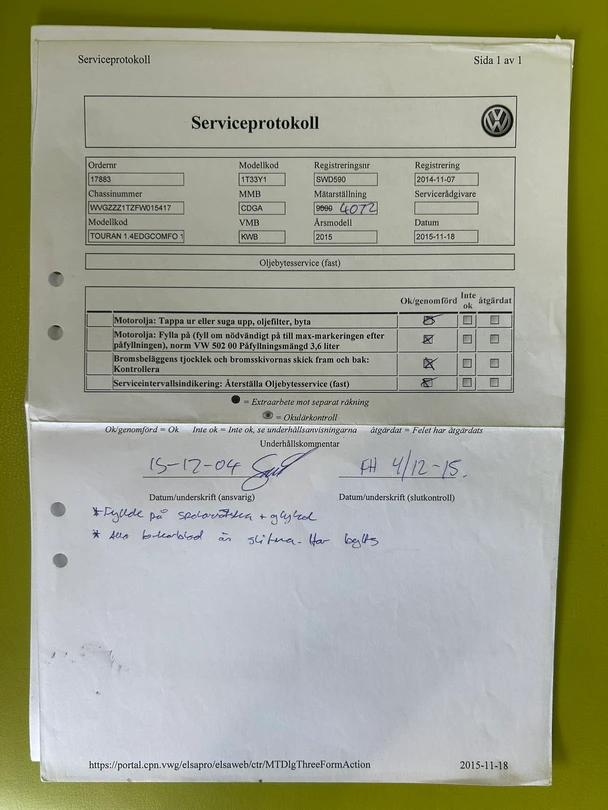 Serviceprotokoll Sida 1 av 1
Serviceprotokoll
Ordernr Modellkod Registreringsnr Registrering
17883 1T33Y1 SWD590 2014-11-07
Chassinummer MMB Mätarställning Servicerådgivare
WVGZZZ1TZFW015417 CDGA 4072
Modellkod VMB Årsmodell Datum
TOURAN 1.4EDGCOMFO 1 KWB 2015 2015-11-18
Oljebytesservice (fast)
Ok/genomförd Inte ok åtgärdat
Motorolja: Tappa ur eller suga upp, oljefilter, byta
Motorolja: Fylla på (fyll om nödvändigt på till max-markeringen efter
påfyllningen), norm VW 502 00 Påfyllningsmängd 3,6 liter
Bromsbeläggens tjocklek och bromsskivornas skick fram och bak:
Kontrollera
Serviceintervallsindikering: Återställa Oljebytesservice (fast)
= Extraarbete mot separat räkning
= Okulärkontroll
Ok/genomförd = Ok Inte ok = Inte ok, se underhållsanvisningarna åtgärdat = Felet har åtgärdats
Underhållskommentar
15-12-04 FH 4/12-15.
Datum/underskrift (ansvarig) Datum/underskrift (slutkontroll)
* Fyllde på spolarvätska + glykol
* Alla torkarblad är slitna. Har bytts
https://portal.cpn.vwg/elsapro/elsaweb/ctr/MTDlgThreeFormAction 2015-11-18